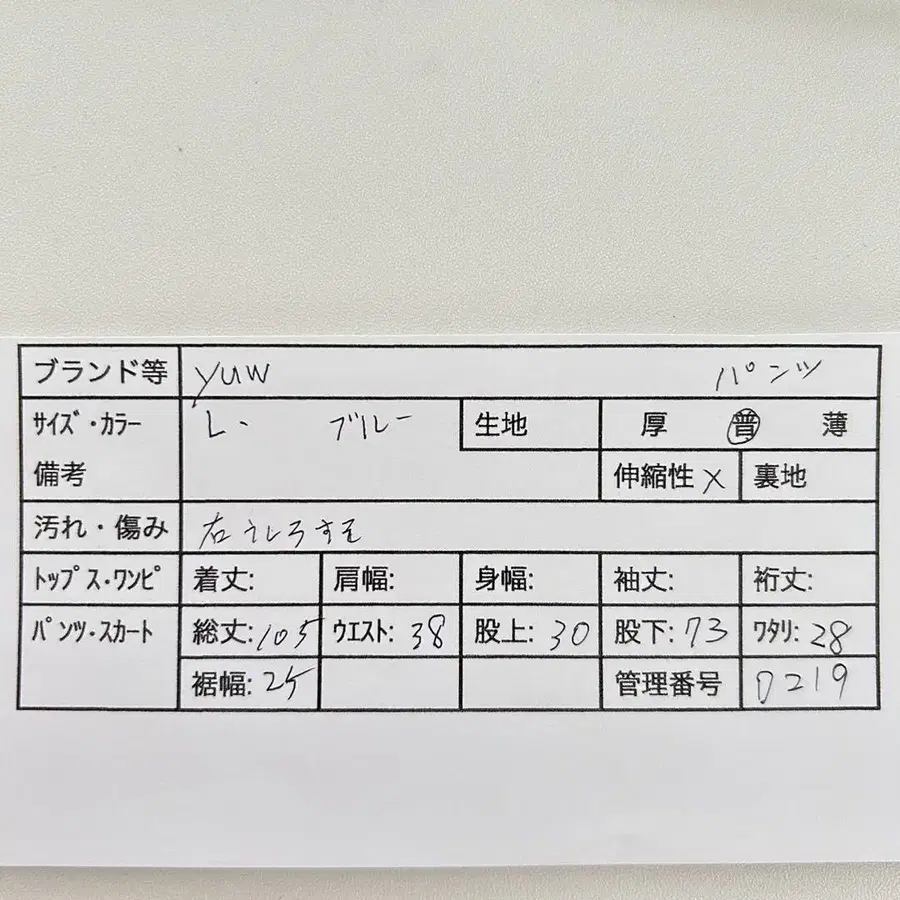 ブランド等 yuw パンツ
サイズ・カラー L・ ブルー 生地 厚 普 薄
備考 伸縮性 × 裏地
汚れ・傷み 右うしろすそ
トップス・ワンピ 着丈: 肩幅: 身幅: 袖丈: 裄丈:
パンツ・スカート 総丈: 105 ウエスト: 38 股上: 30 股下: 73 ワタリ: 28
裾幅: 25 管理番号 0219